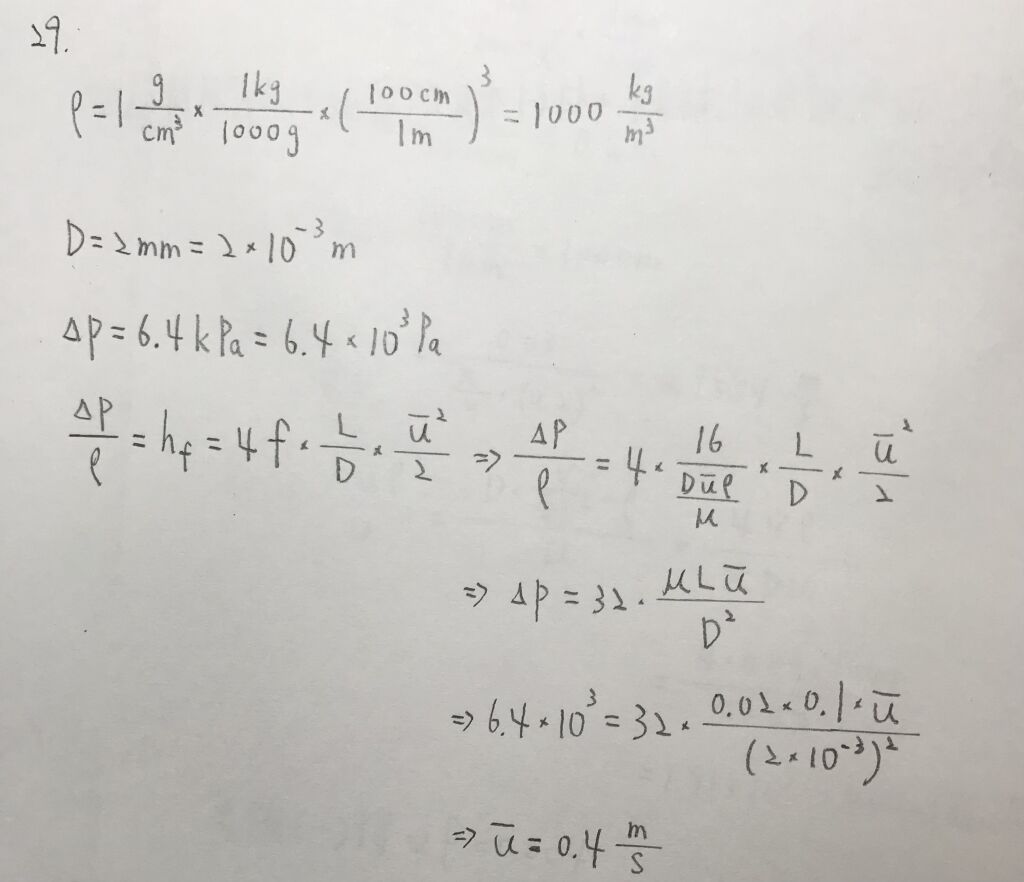 29.
ρ = 1 g/cm³ × 1kg/1000g × (100cm/1m)³ = 1000 kg/m³
D = 2mm = 2 × 10⁻³ m
ΔP = 6.4 kPa = 6.4 × 10³ Pa
ΔP/ρ = h_f = 4f × L/D × ū²/2 ⇒ ΔP/ρ = 4 × 16/(Dūρ/μ) × L/D × ū²/2
⇒ ΔP = 32 · μLū/D²
⇒ 6.4 × 10³ = 32 × 0.02 × 0.1 × ū/(2 × 10⁻³)²
⇒ ū = 0.4 m/s